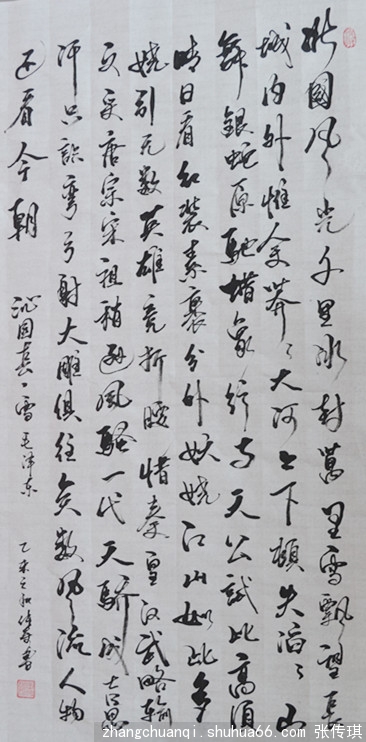 北國风光千里冰封萬里雪飘望長
城内外惟余莽々大河上下顿失滔々山
舞銀蛇原驰蜡象欲与天公試比高須
晴日看红装素裹分外妖娆江山如此多
娇引无数英雄竞折腰惜秦皇汉武略输
文采唐宗宋祖稍逊風騷一代天骄成吉思
汗只識彎弓射大雕俱往矣数风流人物
还看今朝
沁园春·雪毛泽东
乙未之秋传琪書
zhangchuanqi.shuhua66.com 张传琪